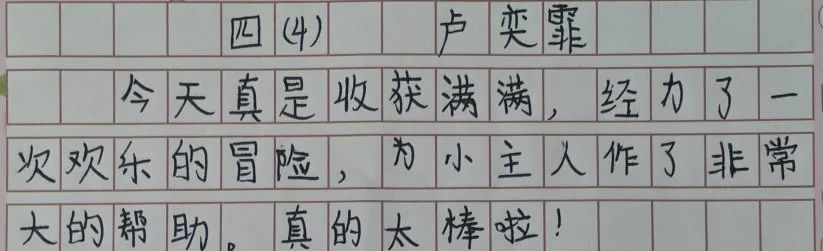 四(4) 卢奕霏
今天真是收获满满,经力了一
次欢乐的冒险,为小主人作了非常
大的帮助。真的太棒啦!